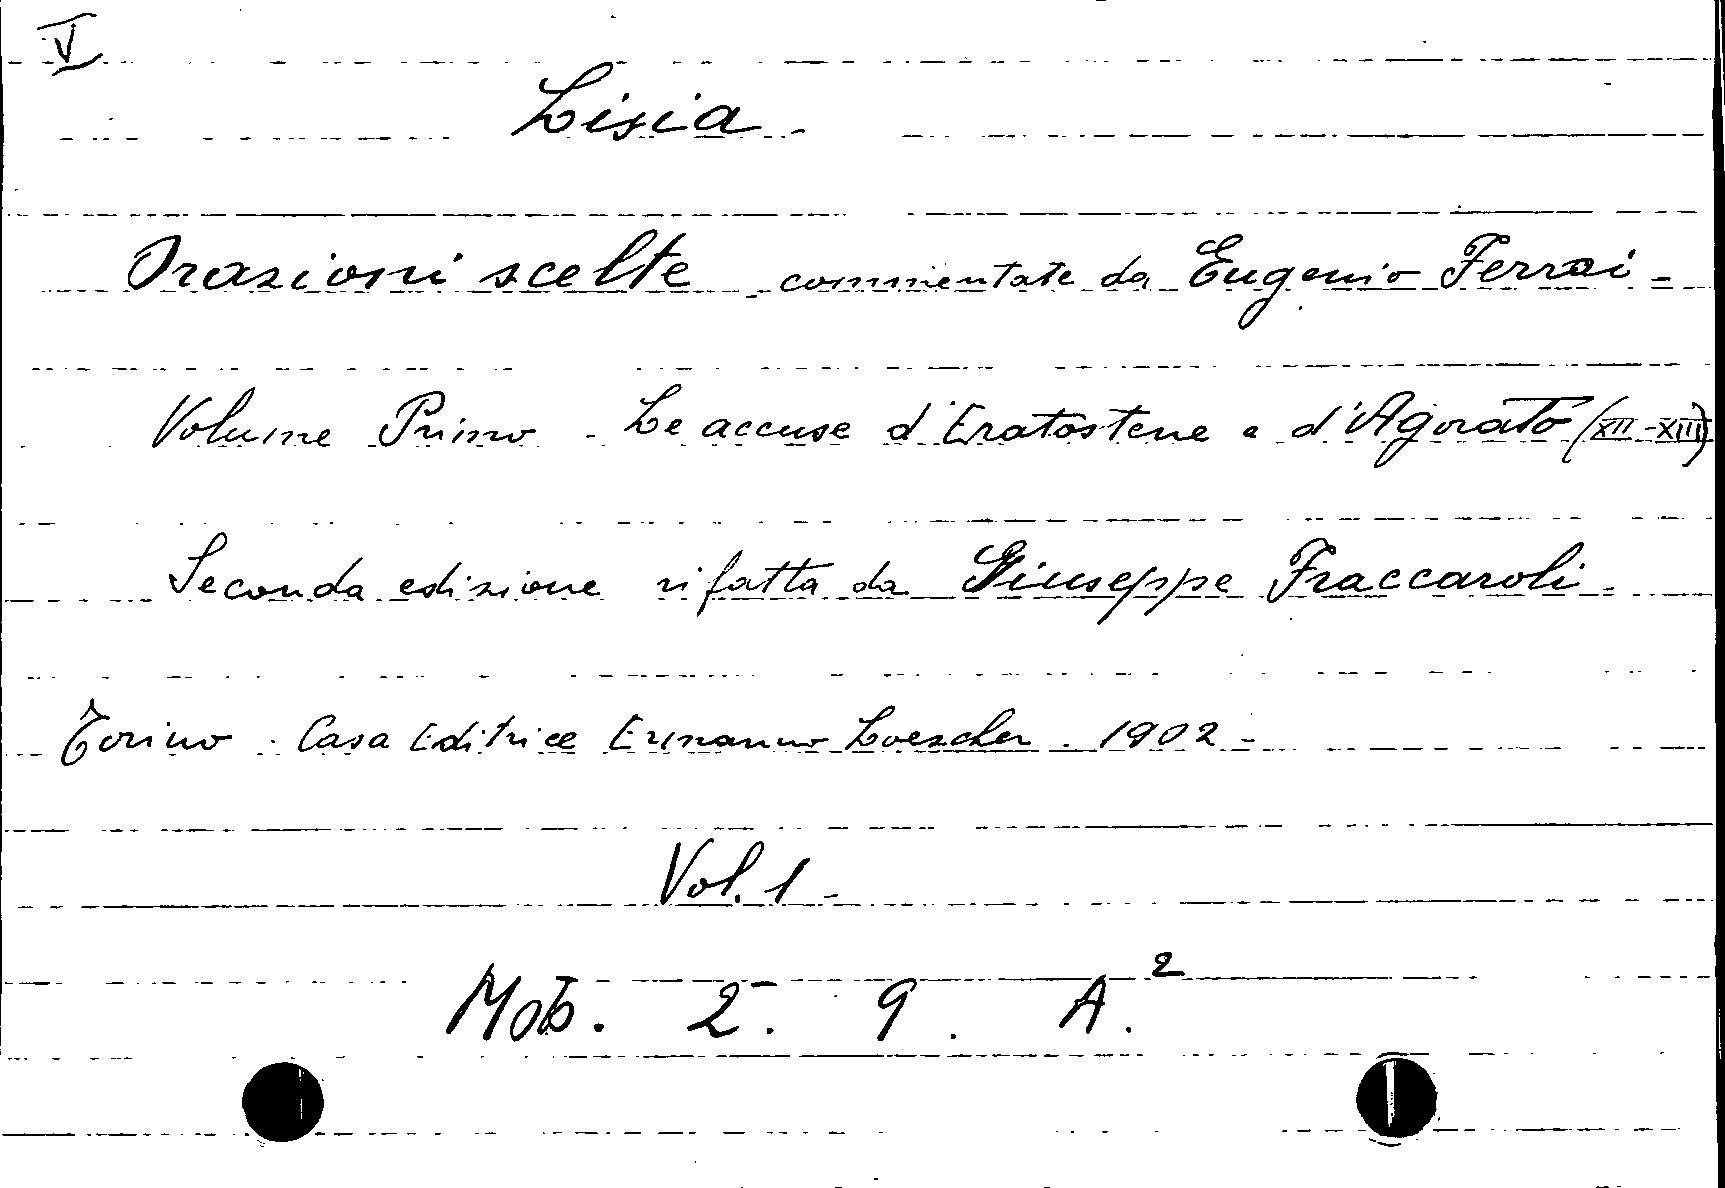 V
Lisia -
Orazioni scelte - commentate da Eugenio Ferrai -
Volume Primo - Le accuse d'Eratostene e d'Agorato (XII-XIII)
Seconda edizione rifatta da Giuseppe Fraccaroli -
Torino - Casa Editrice Ermanno Loescher - 1902 -
Vol. 1 -
Mob. 2. 9. A.²